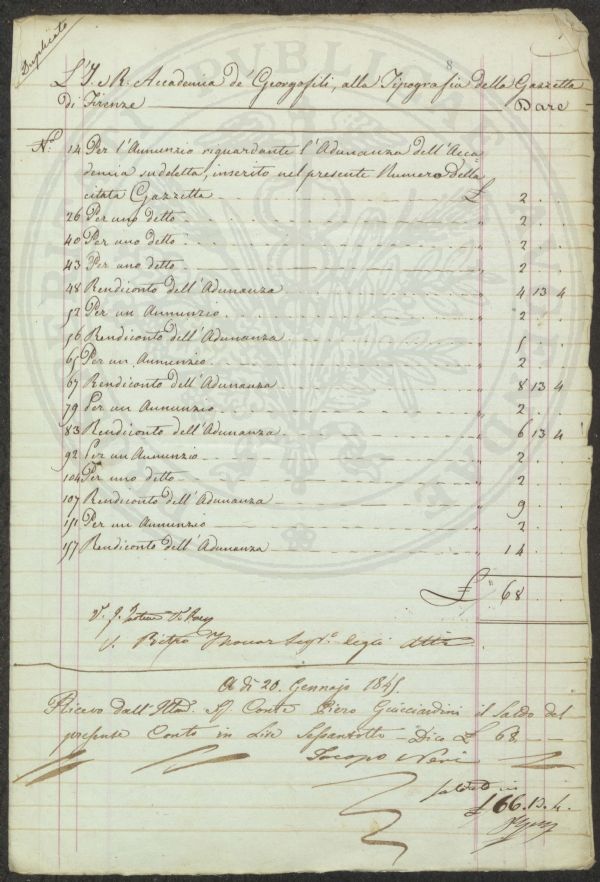 Duplicato
8
L'I. e R. Accademia de' Georgofili, alla Tipografia della Gazzetta
di Firenze Dare
N.° 14 Per l'Annunzio riguardante l'Adunanza dell'Acca-
demia sudetta, inserito nel presente Numero della
citata Gazzetta £ 2 . .
26 Per uno detto " 2 . .
40 Per uno detto " 2 . .
43 Per uno detto " 2 . .
48 Rendiconto dell'Adunanza " 4 13 4
52 Per un Annunzio " 2 . .
56 Rendiconto dell'Adunanza " 5 . .
65 Per un Annunzio " 2 . .
67 Rendiconto dell'Adunanza " 8 13 4
79 Per un Annunzio " 2 . .
83 Rendiconto dell'Adunanza " 6 13 4
92 Per un Annunzio " 2 . .
104 Per uno detto " 2 . .
107 Rendiconto dell'Adunanza " 9 . .
151 Per un Annunzio " 2 . .
157 Rendiconto dell'Adunanza " 14 . .
£ 68 . .
Pietro Thouar Seg.° degli Atti
A dì 20. Gennajo 1845.
Ricevo dall'Illmo. Sig Conte Piero Guicciardini il Saldo del
presente Conto in Lire Sessantotto Dico £ 68
Jacopo Neri
Saldato in
£ 66. 13. 4.